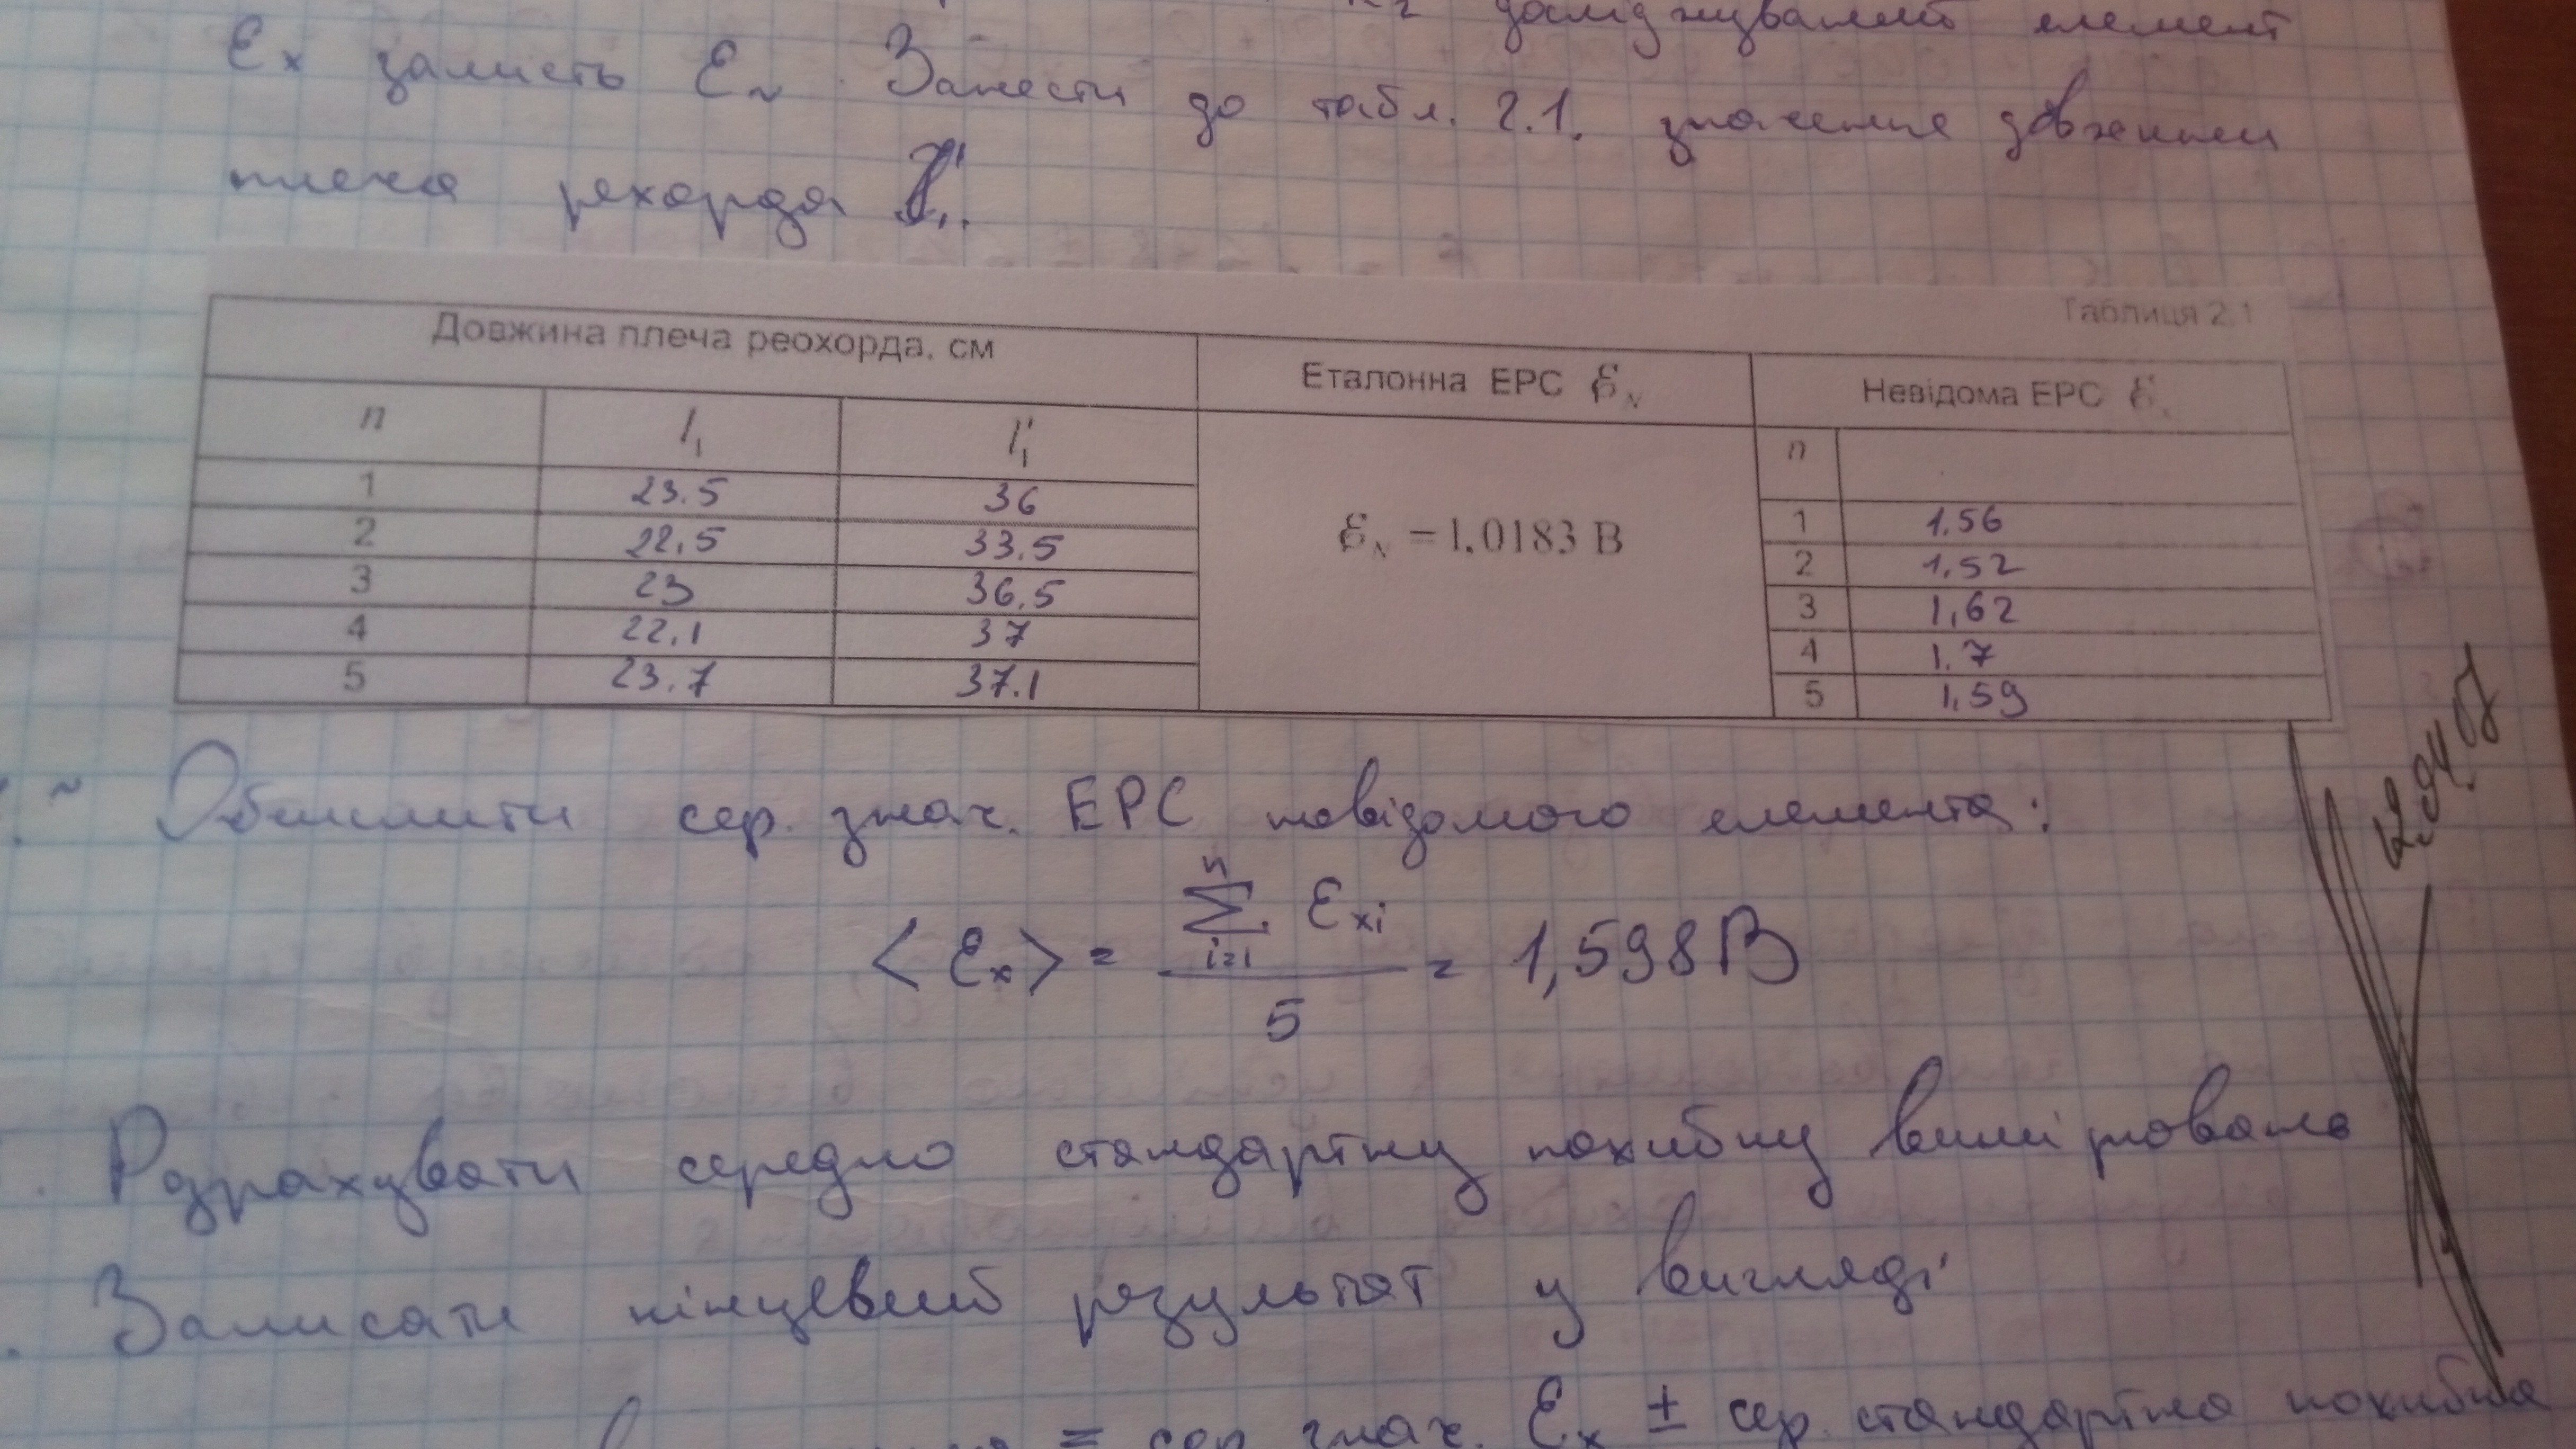 досліджуваний елемент
Ex замість EN. Занести до табл. 2.1. значення довжини
плеча рехорда l'1.
Таблиця 2.1
Довжина плеча реохорда, см | Еталонна ЕРС ℰN | Невідома ЕРС ℰx
n | l1 | l'1 | ℰN = 1.0183 В | n
1 | 23.5 | 36 | 1 | 1.56
2 | 22,5 | 33,5 | 2 | 1,52
3 | 23 | 36,5 | 3 | 1,62
4 | 22,1 | 37 | 4 | 1.7
5 | 23.7 | 37.1 | 5 | 1,59
Обчислити сер. знач. ЕРС невідомого елемента:
<Ex> = n∑i=1 Exi / 5 = 1,598 В
Розрахувати середню стандартну похибку вимірювань
Записати кінцевий результат у вигляді
= сер. знач. Ex ± сер. стандартна похибка